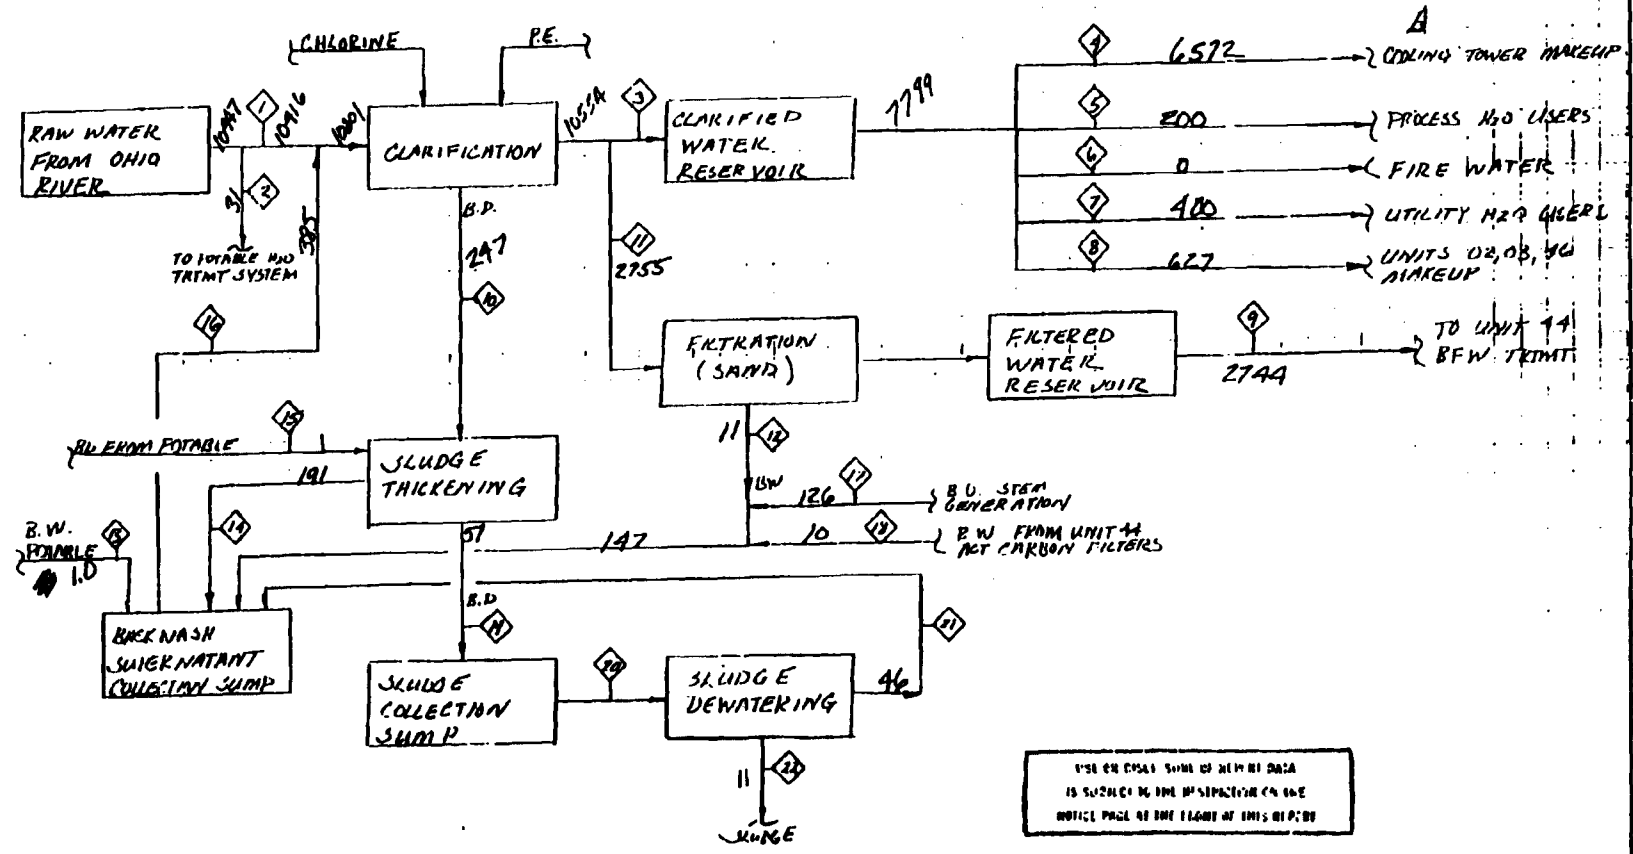 CHLORINE
P.E.
RAW WATER
FROM OHIO
RIVER
10947
1
10916
10801
CLARIFICATION
10554
3
CLARIFIED
WATER
RESERVOIR
7799
4
6572
COOLING TOWER MAKEUP
5
200
PROCESS H2O USERS
6
0
FIRE WATER
7
400
UTILITY H2O USERS
8
627
UNITS 02, 03,
MAKEUP
31
2
TO POTABLE H2O
TRTMT SYSTEM
385
B.D.
247
10
11
2755
16
FILTRATION
(SAND)
FILTERED
WATER
RESERVOIR
9
2744
TO UNIT 44
BFW TRTMT
15
1
FROM POTABLE
SLUDGE
THICKENING
191
14
11
12
BW
126
17
GENERATION
147
10
18
B.W. FROM UNIT 44
ACT CARBON FILTERS
B.W.
POTABLE
1.0
13
BACKWASH
SUPERNATANT
COLLECTION SUMP
B.D
SLUDGE
COLLECTION
SUMP
20
SLUDGE
DEWATERING
46
21
11
22
SLUDGE
USE OR DISCLOSURE OF REPORT DATA
IS SUBJECT TO THE RESTRICTION ON THE
NOTICE PAGE AT THE FRONT OF THIS REPORT